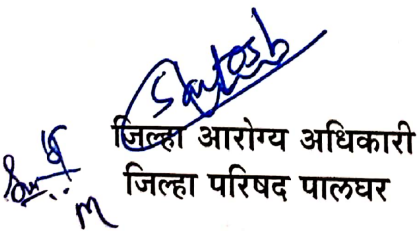 Santosh
जिल्हा आरोग्य अधिकारी
जिल्हा परिषद पालघर